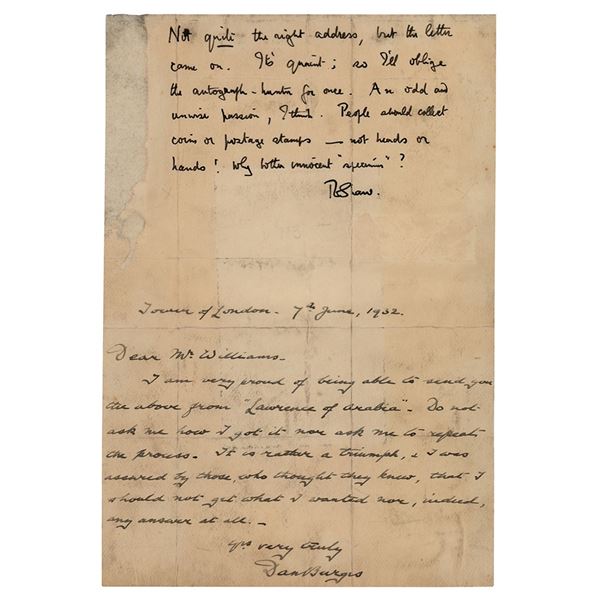 Not quite the right address, but the letter
came on. It's quaint; so I'll oblige
the autograph-hunter for once. An odd and
unwise passion, I think. People should collect
coins or postage stamps — not heads or
hands! Why bother innocent "specimens"?
TEShaw.
Tower of London - 7th June, 1932.
Dear Mr Williams -
I am very proud of being able to send you
the above from "Lawrence of Arabia" - Do not
ask me how I got it nor ask me to repeat
the process - It is rather a triumph, & I was
assured by those, who thought they knew, that I
should not get what I wanted nor, indeed,
any answer at all. -
Yrs very truly
Dan Burges